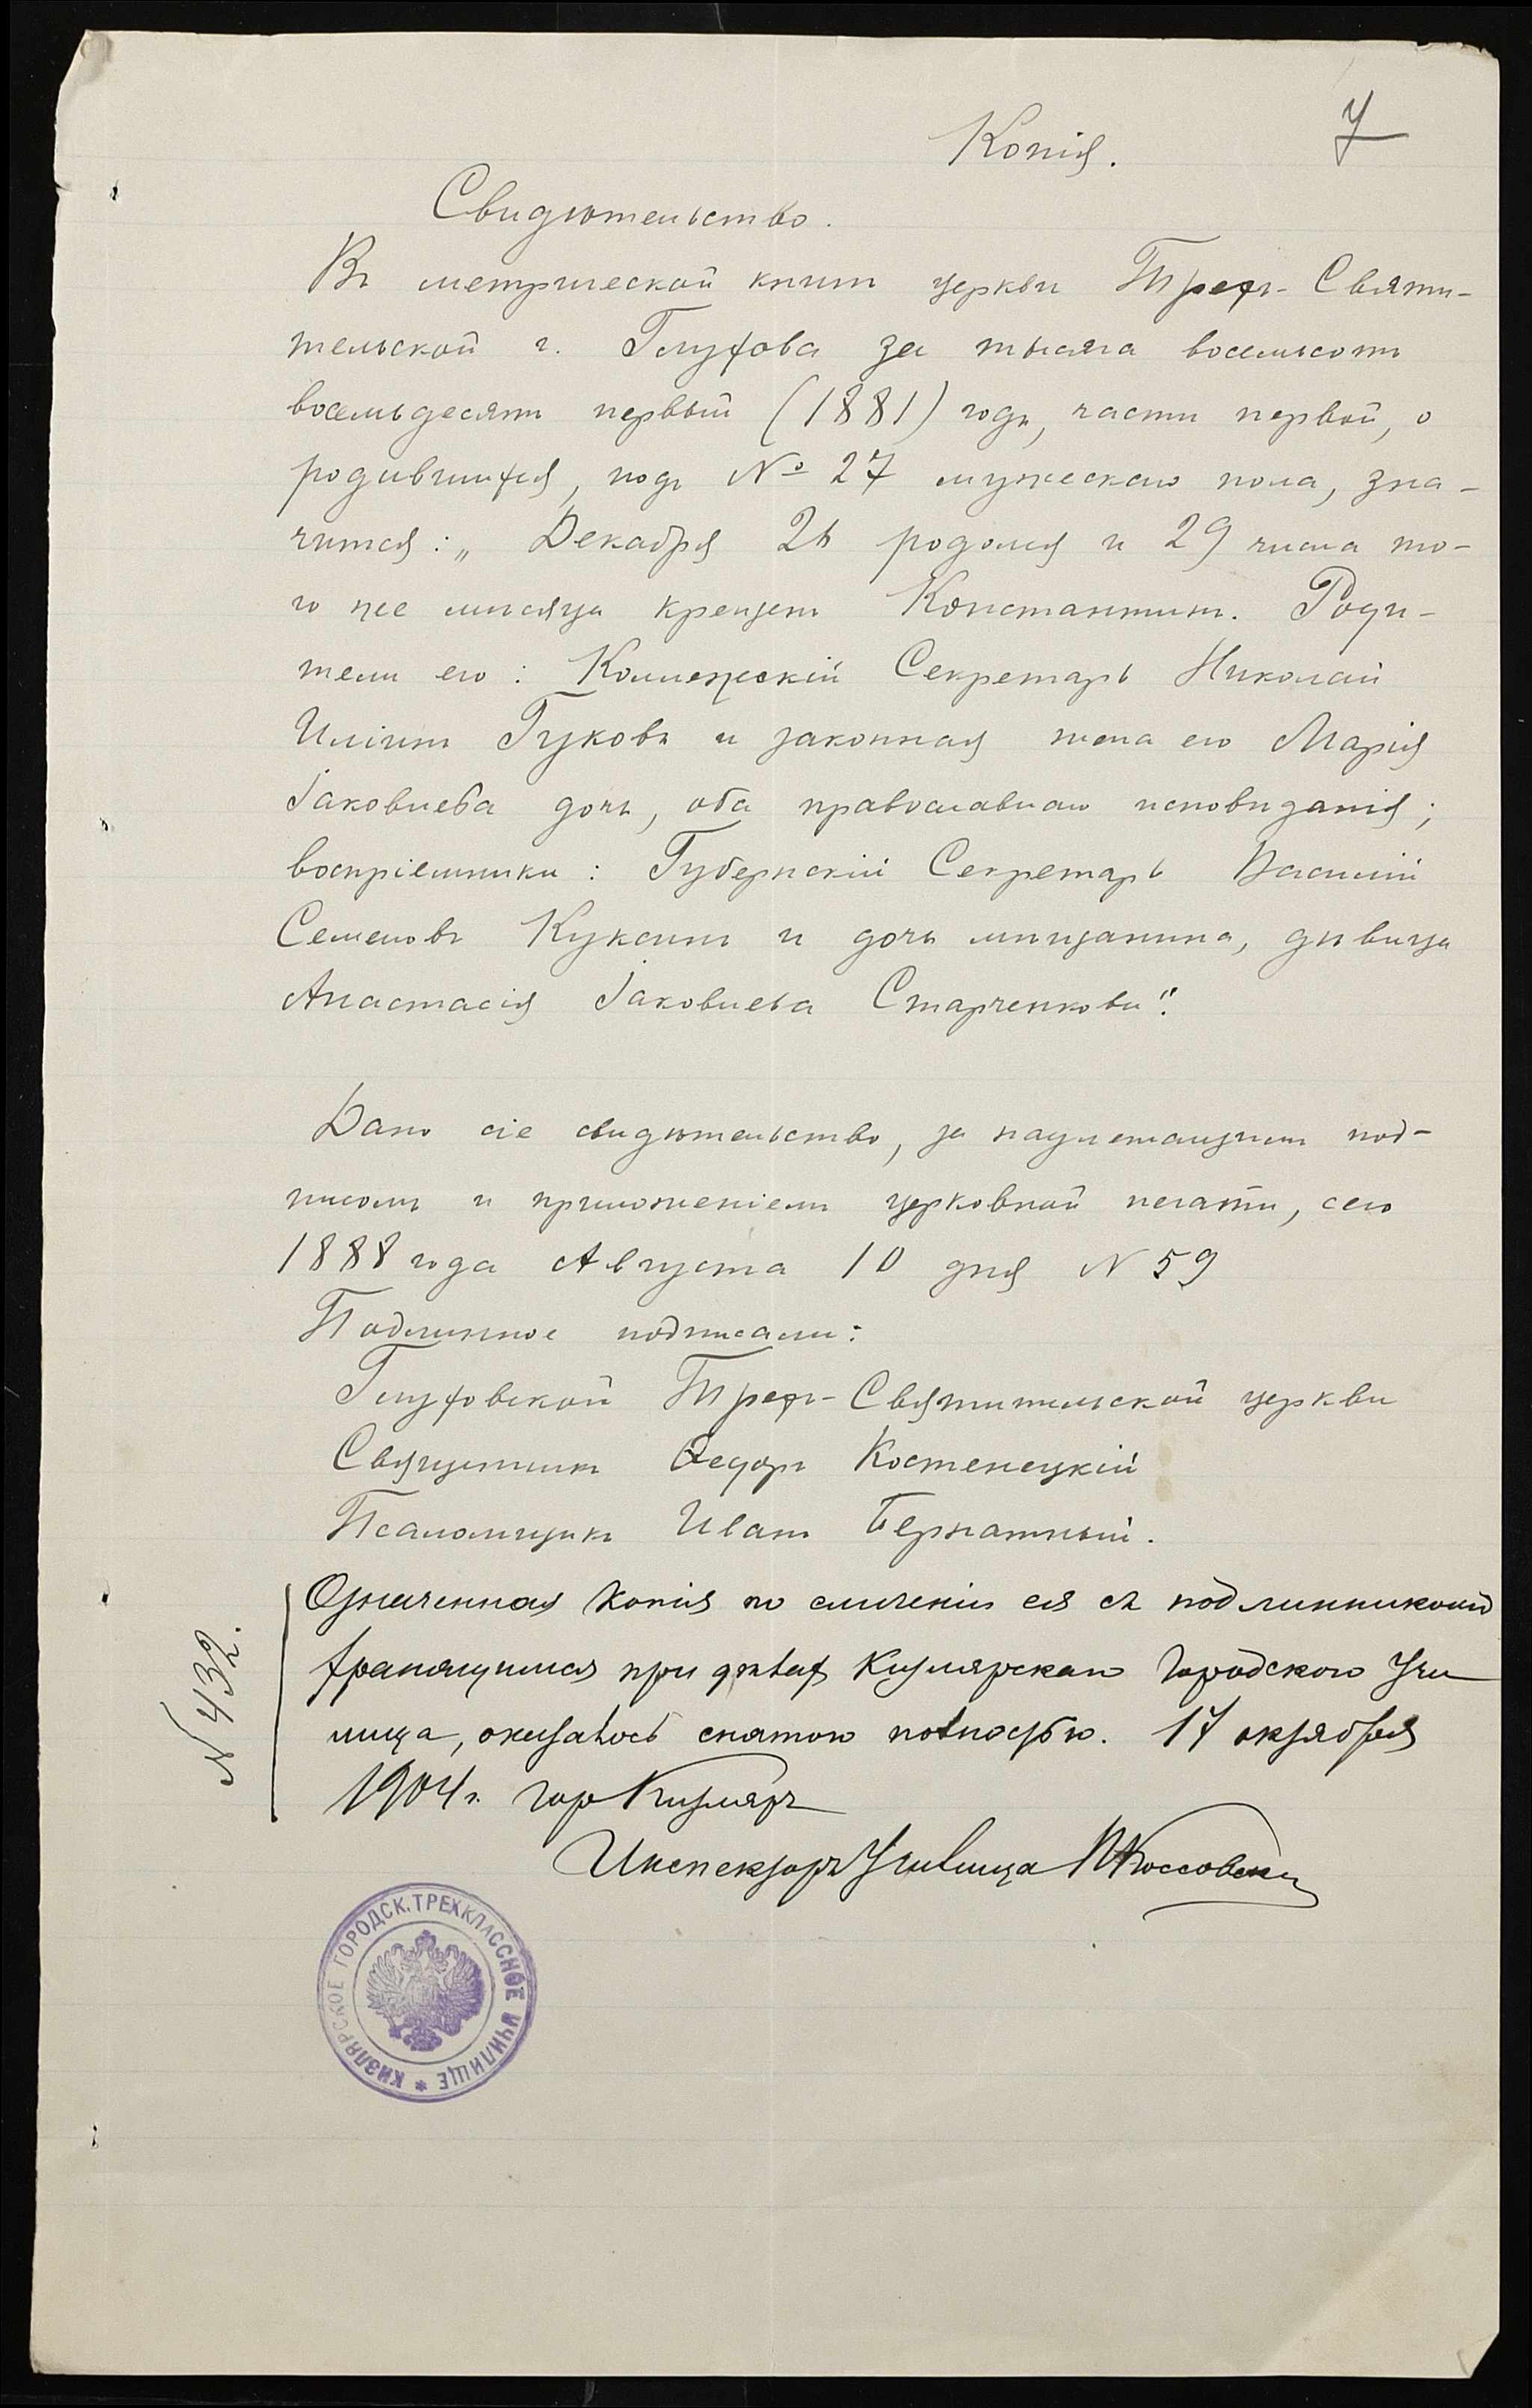 Копія.
7
Свидѣтельство.
Въ метрической книгѣ церкви Трехъ-Святи-
тельской г. Глухова за тысяча восемьсотъ
восемьдесятъ первый (1881) годъ, части первой, о
родившихся, подъ № 27 мужескаго пола, зна-
чится: „Декабря 26 родился и 29 числа то-
го же мѣсяца крещенъ Константинъ. Роди-
тели его: Коллежскій Секретарь Николай
Иліинъ Гуковъ и законная жена его Марія
Іаковлева дочь, оба православнаго исповѣданія;
воспріемники: Губернскій Секретарь Василій
Семеновъ Куксинъ и дочь мѣщанина, дѣвица
Анастасія Іаковлева Старченкова".
Дано сіе свидѣтельство, за надлежащимъ под-
писомъ и приложеніемъ церковной печати, сего
1888 года Августа 10 дня N 59
Подлинное подписали:
Глуховской Трехъ-Святительской церкви
Священникъ Ѳедоръ Костенецкій
Псаломщикъ Иванъ Бернатный.
Означенная копія по сличеніи ея съ подлинникомъ
хранящимся при дѣлахъ Кизлярскаго Городского Учи
лища, оказалось снятою полностью. 17 октября
1904 г. гор Кизляръ
N 432.
Инспекторъ Училища Коссовскій
КИЗЛЯРСКОЕ ГОРОДСК. ТРЕХКЛАССНОЕ УЧИЛИЩЕ *